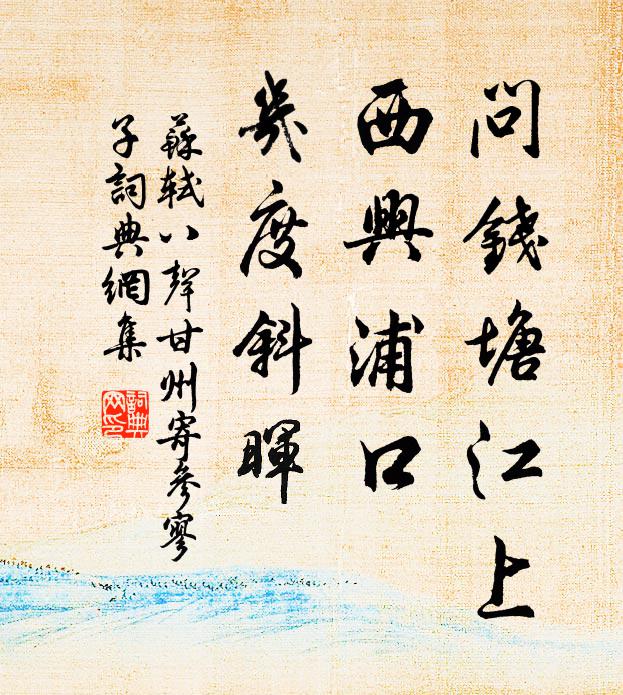 問錢塘江上
西興浦口
幾度斜暉
蘇軾八聲甘州寄參寥
子詞典網集
詞典網印